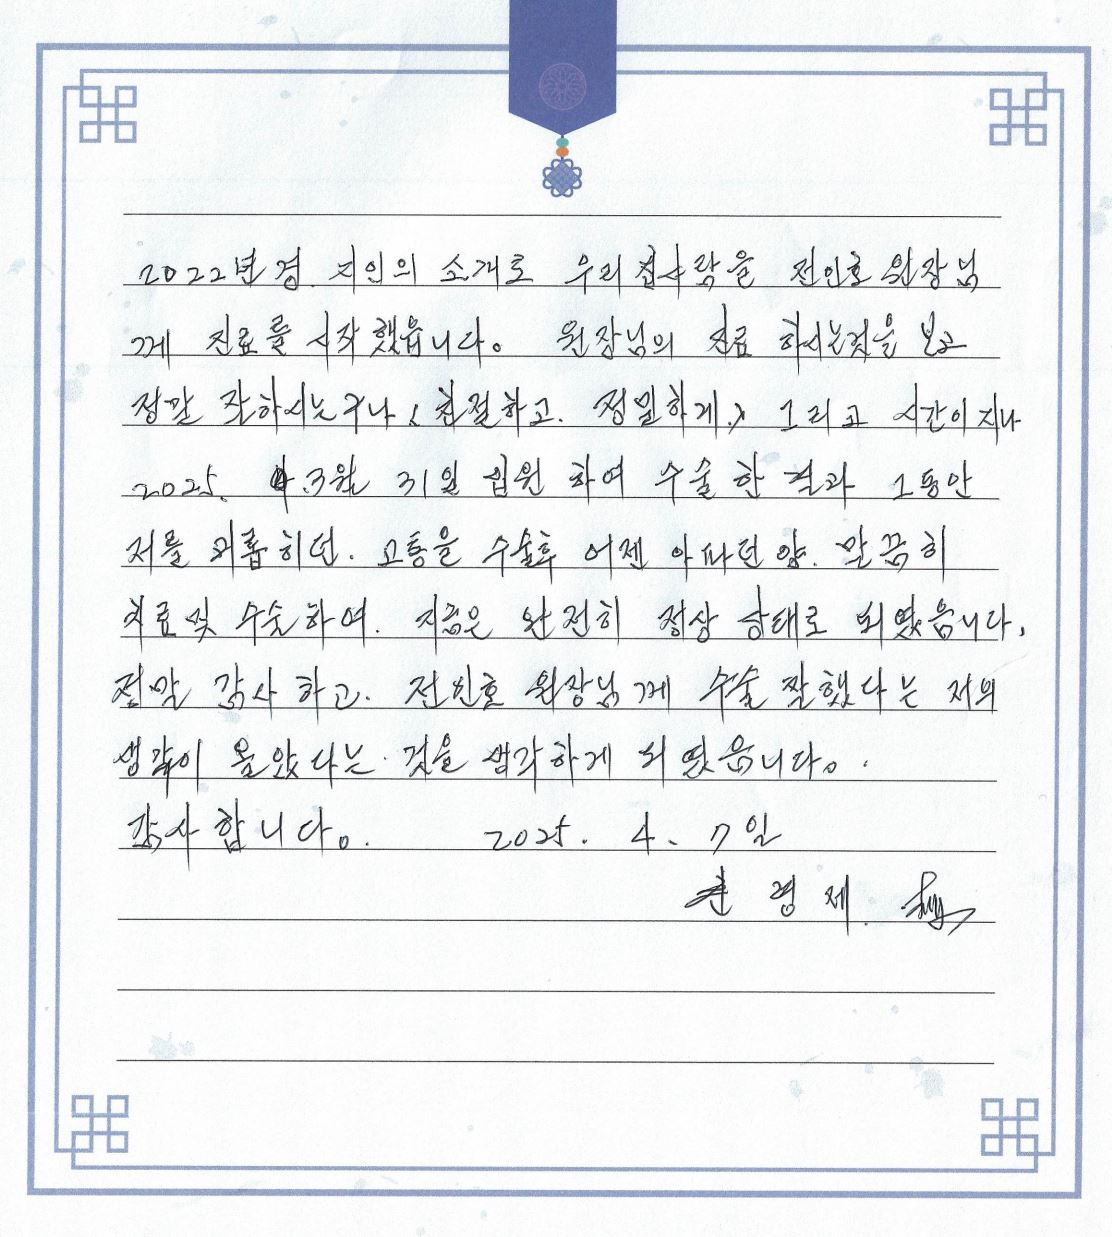 2022년경. 지인의 소개로 우리집사람을 전인호 원장님
께 진료를 시작했읍니다. 원장님의 진료 하시는것을 보고
정말 잘하시는구나 (친절하고. 정밀하게.) 그리고 시간이 지나
2025. 3월 31일 입원 하여 수술 한 결과 그동안
저를 괴롭히던. 고통을 수술후 어젠 아파던 양. 말끔히
치료및 수술하여. 지금은 완전히 정상 상태로 되였읍니다.
정말 감사 하고. 전인호 원장님께 수술 잘했다는 저의
생각이 옳았다는. 것을 생각하게 되였읍니다.
감사합니다. 2025. 4. 7일
영제.